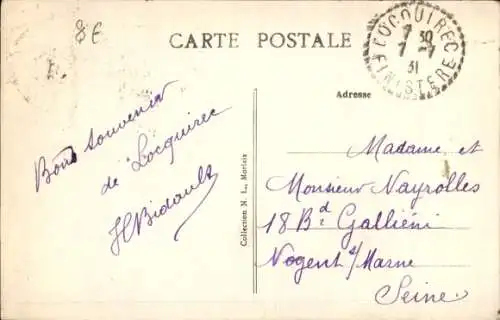 8€
CARTE POSTALE
LOCQUIREC
7 30
7 -7
31
FINISTERE
Adresse
Bons souvenir
de Locquirec
H Bidault
Collection N. L., Morlaix
Madame et
Monsieur Nayrolles
18 Bd Galliéni
Nogent s/Marne
Seine